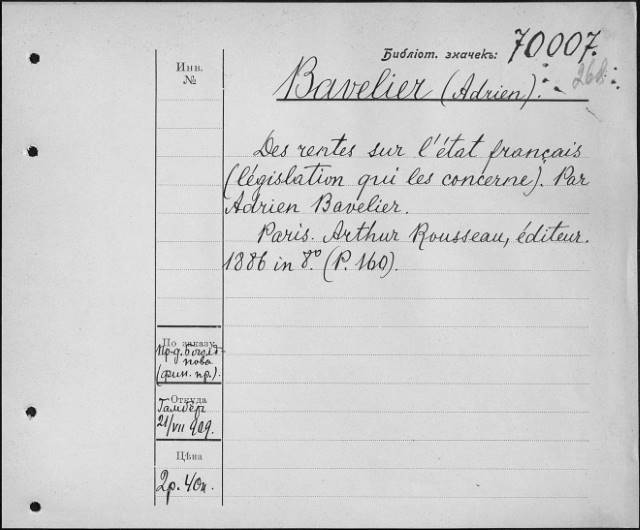 Библіот. значекъ: 70007.
268.
Инв.
№
Bavelier (Adrien).
Des rentes sur l'état français
(législation qui les concerne). Par
Adrien Bavelier.
Paris. Arthur Rousseau, éditeur.
1886 in 8.º (P. 160).
По заказу
(фин. пр.).
Откуда
21/VII 909.
Цѣна
2р. 40к.